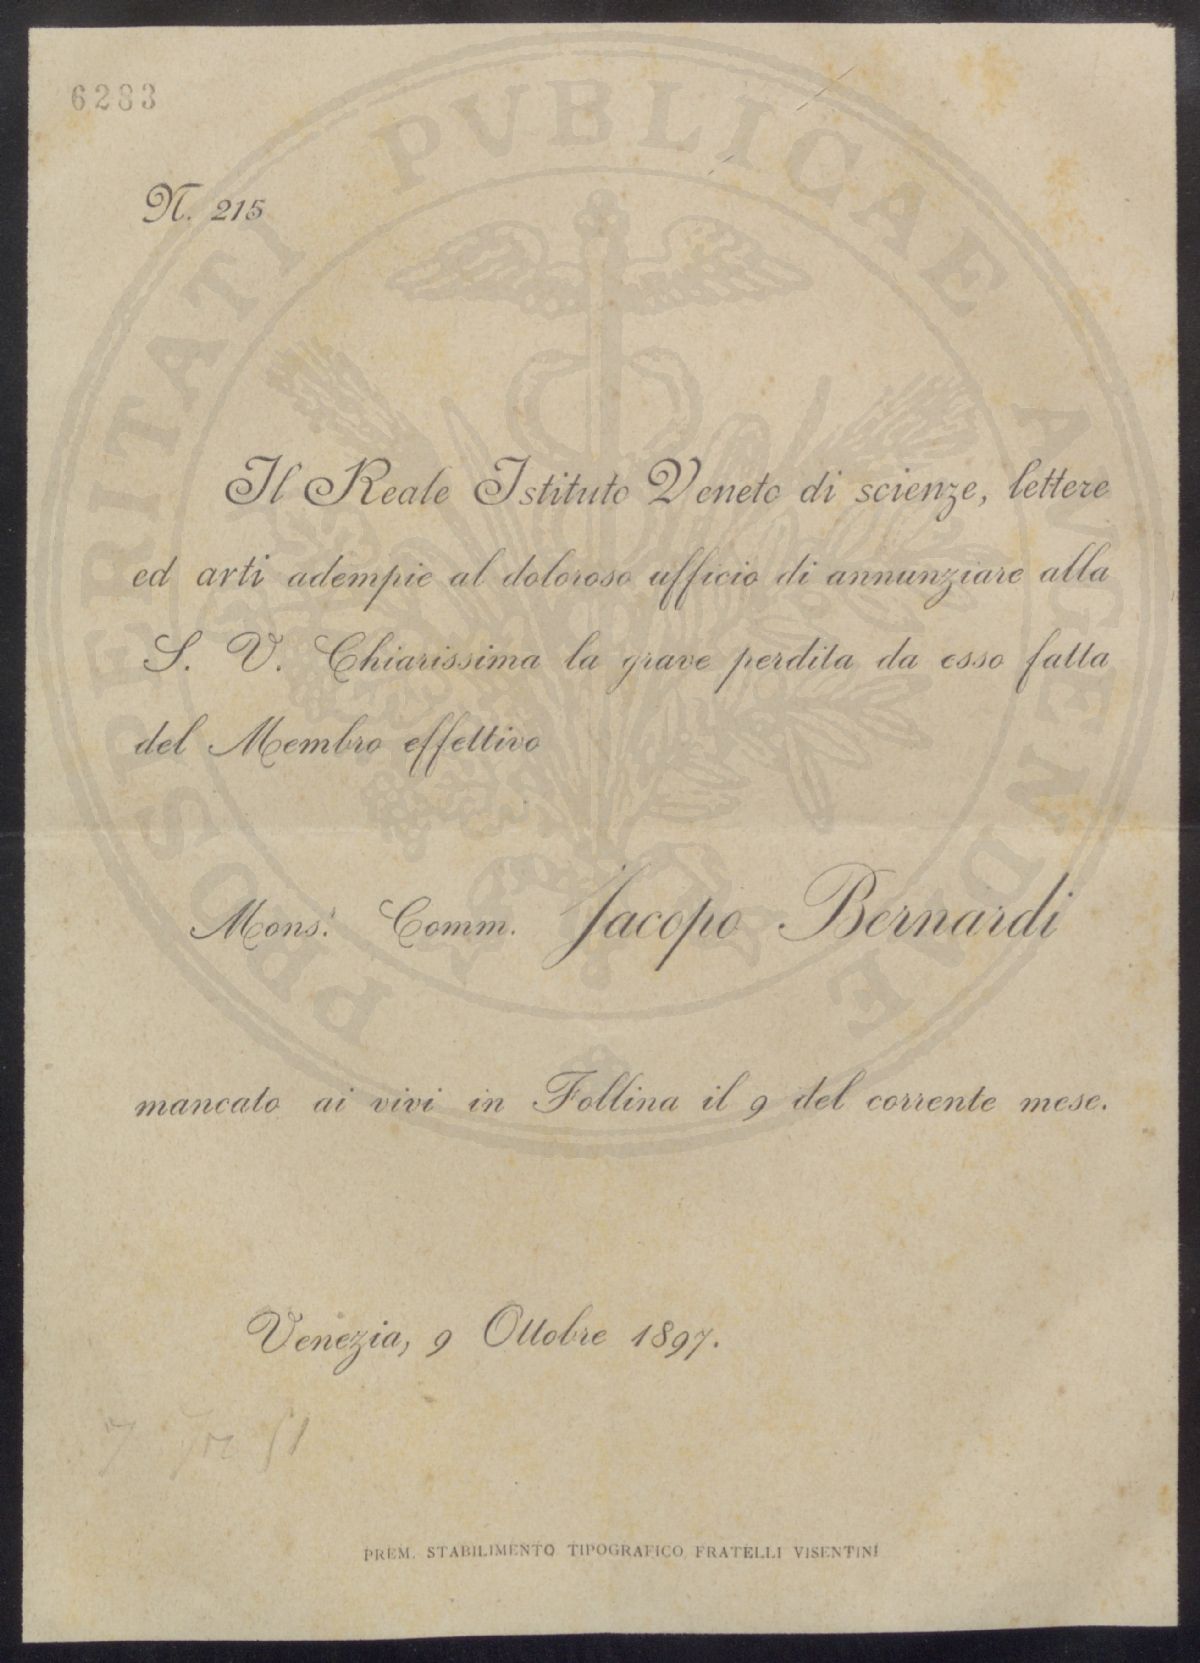 6283
N. 215
Il Reale Istituto Veneto di scienze, lettere
ed arti adempie al doloroso ufficio di annunziare alla
S. V. Chiarissima la grave perdita da esso fatta
del Membro effettivo
Mons.r Comm. Jacopo Bernardi
mancato ai vivi in Follina il 9 del corrente mese.
Venezia, 9 Ottobre 1897.
PREM. STABILIMENTO TIPOGRAFICO FRATELLI VISENTINI
PROSPERITATI PVBLICAE AVGENDAE